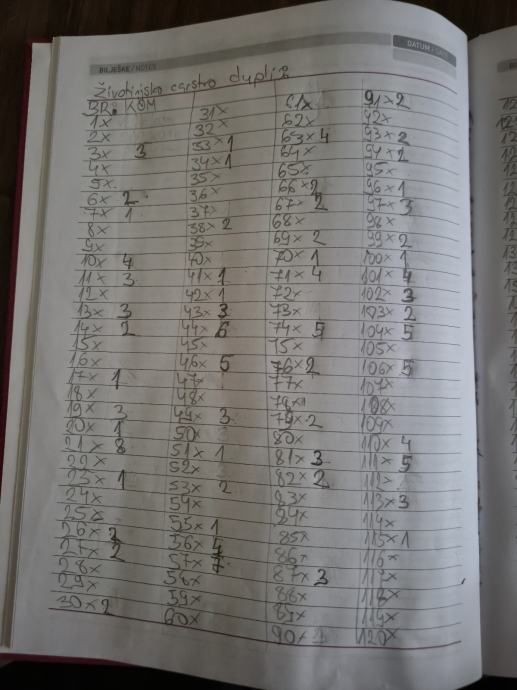 BILJEŠKE / NOTES
DATUM /
Životinjsko carstvo dupli
BR. KOM
1x
2x
3x 3
4x
5x
6x 2
7x 1
8x
9x
10x 4
11x 3
12x
13x 3
14x 2
15x
16x
17x 1
18x
19x 3
20x 1
21x 8
22x
23x 1
24x
25x
26x 2
27x 2
28x
29x
30x 2
31x
32x
33x 1
34x 1
35x
36x
37x
38x 2
39x
40x
41x 1
42x 1
43x 3
44x 6
45x
46x 5
47x
48x
49x 3
50x
51x 1
52x
53x 2
54x
55x 1
56x 4
57x 7
58x
59x
60x
61x
62x
63x 4
64x
65x
66x 2
67x 2
68x
69x 2
70x 1
71x 4
72x
73x
74x 5
75x
76x 2
77x
78x
79x 2
80x
81x 3
82x 2
83x
84x
85x
86x
87x 3
88x
89x
90x
91x 2
92x
93x 2
94x 2
95x
96x 1
97x 3
98x
99x 2
100x 1
101x 4
102x 3
103x 2
104x 5
105x
106x 5
107x
108x
109x
110x 4
111x 5
112x
113x 3
114x
115x 1
116x
117x
118x
119x
120x